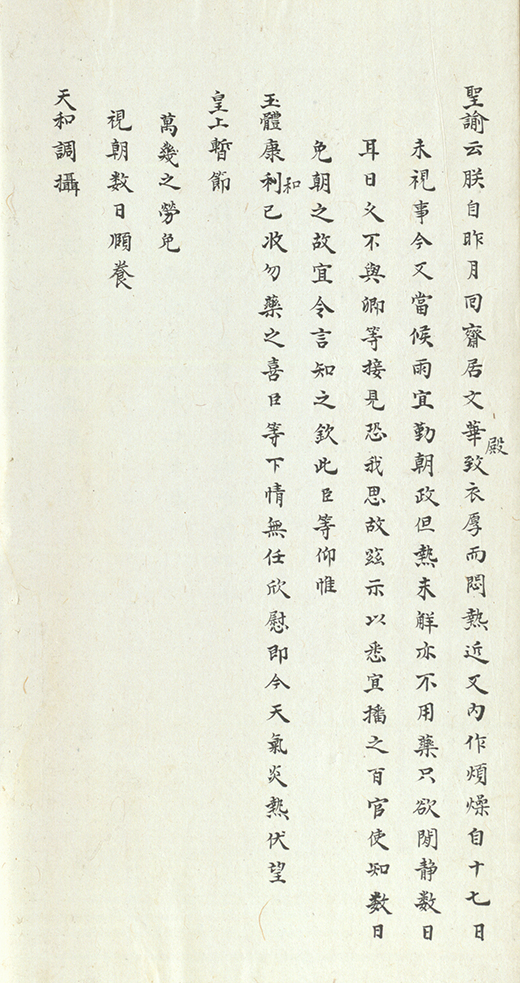 聖諭云朕自昨月回齋居文華殿致衣厚而悶熱近又內作煩燥自十七日
未視事今又當候雨宜勤朝政但熱未解亦不用藥只欲閒静数日
耳日久不與卿等接見恐我思故兹示以悉宜播之百官使知数日
免朝之故宜令言知之欽此臣等仰惟
玉體康和利已收勿藥之喜臣等下情無任欣慰即今天氣炎熱伏望
皇上暫節
萬幾之勞免
視朝数日頤養
天和調攝